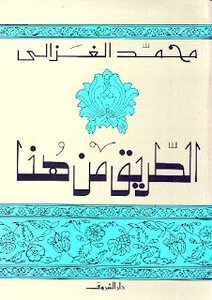 محمد الغزالى
الطريق من هنا
دار الشروق